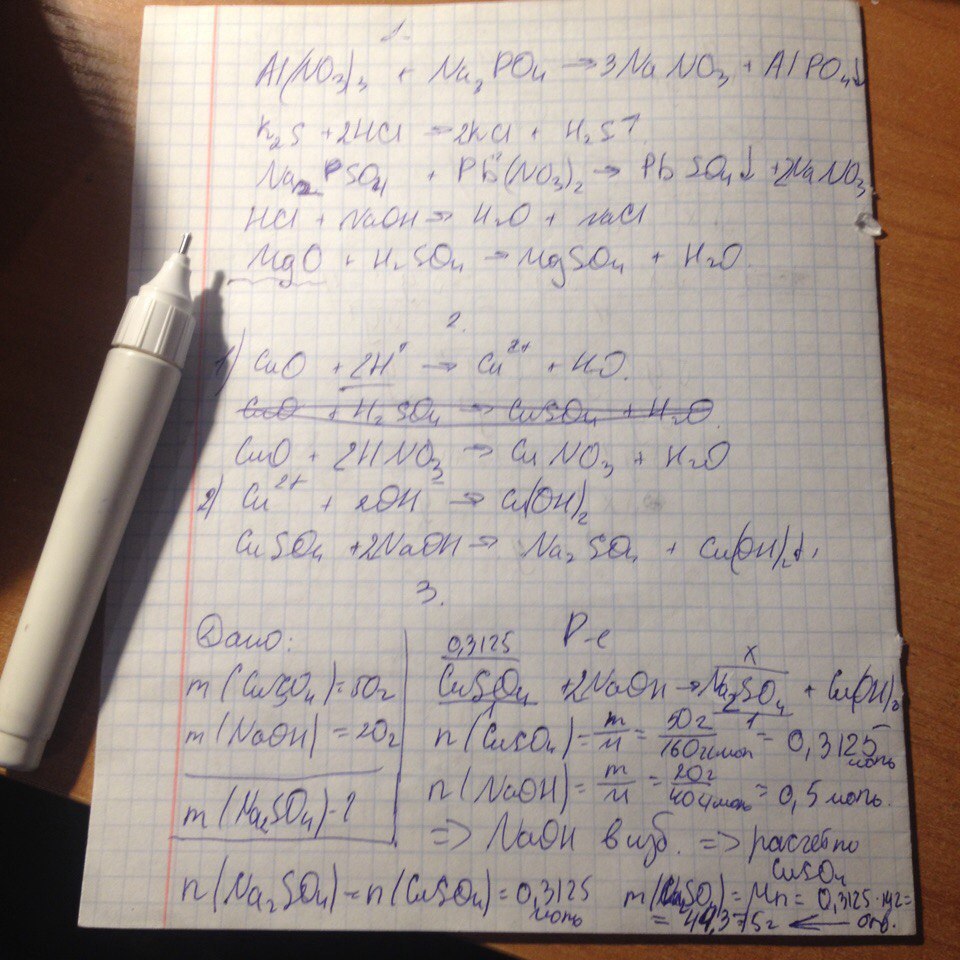 1.
Al(NO3)3 + Na3PO4 → 3NaNO3 + AlPO4↓
K2S + 2HCl → 2KCl + H2S↑
Na2SO4 + Pb(NO3)2 → PbSO4↓ + 2NaNO3
HCl + NaOH → H2O + NaCl
MgO + H2SO4 → MgSO4 + H2O.
2.
1) CuO + 2H+ → Cu2+ + H2O.
CuO + H2SO4 → CuSO4 + H2O.
CuO + 2HNO3 → CuNO3 + H2O
2) Cu2+ + 2OH- → Cu(OH)2
CuSO4 + 2NaOH → Na2SO4 + Cu(OH)2↓.
3.
Дано:
m(CuSO4)=50г
m(NaOH)=20г
m(Na2SO4)-?
Р-е
0,3125 x
CuSO4 + 2NaOH → Na2SO4 + Cu(OH)2
1
n(CuSO4)= m/M = 50г/160г/моль = 0,3125 моль
n(NaOH)= m/M = 20г/40г/моль = 0,5 моль.
=> NaOH в изб. => расчёт по CuSO4
n(Na2SO4)=n(CuSO4)=0,3125 моль
m(Na2SO4)=Mn=0,3125·142=
=44,375г ← отв.